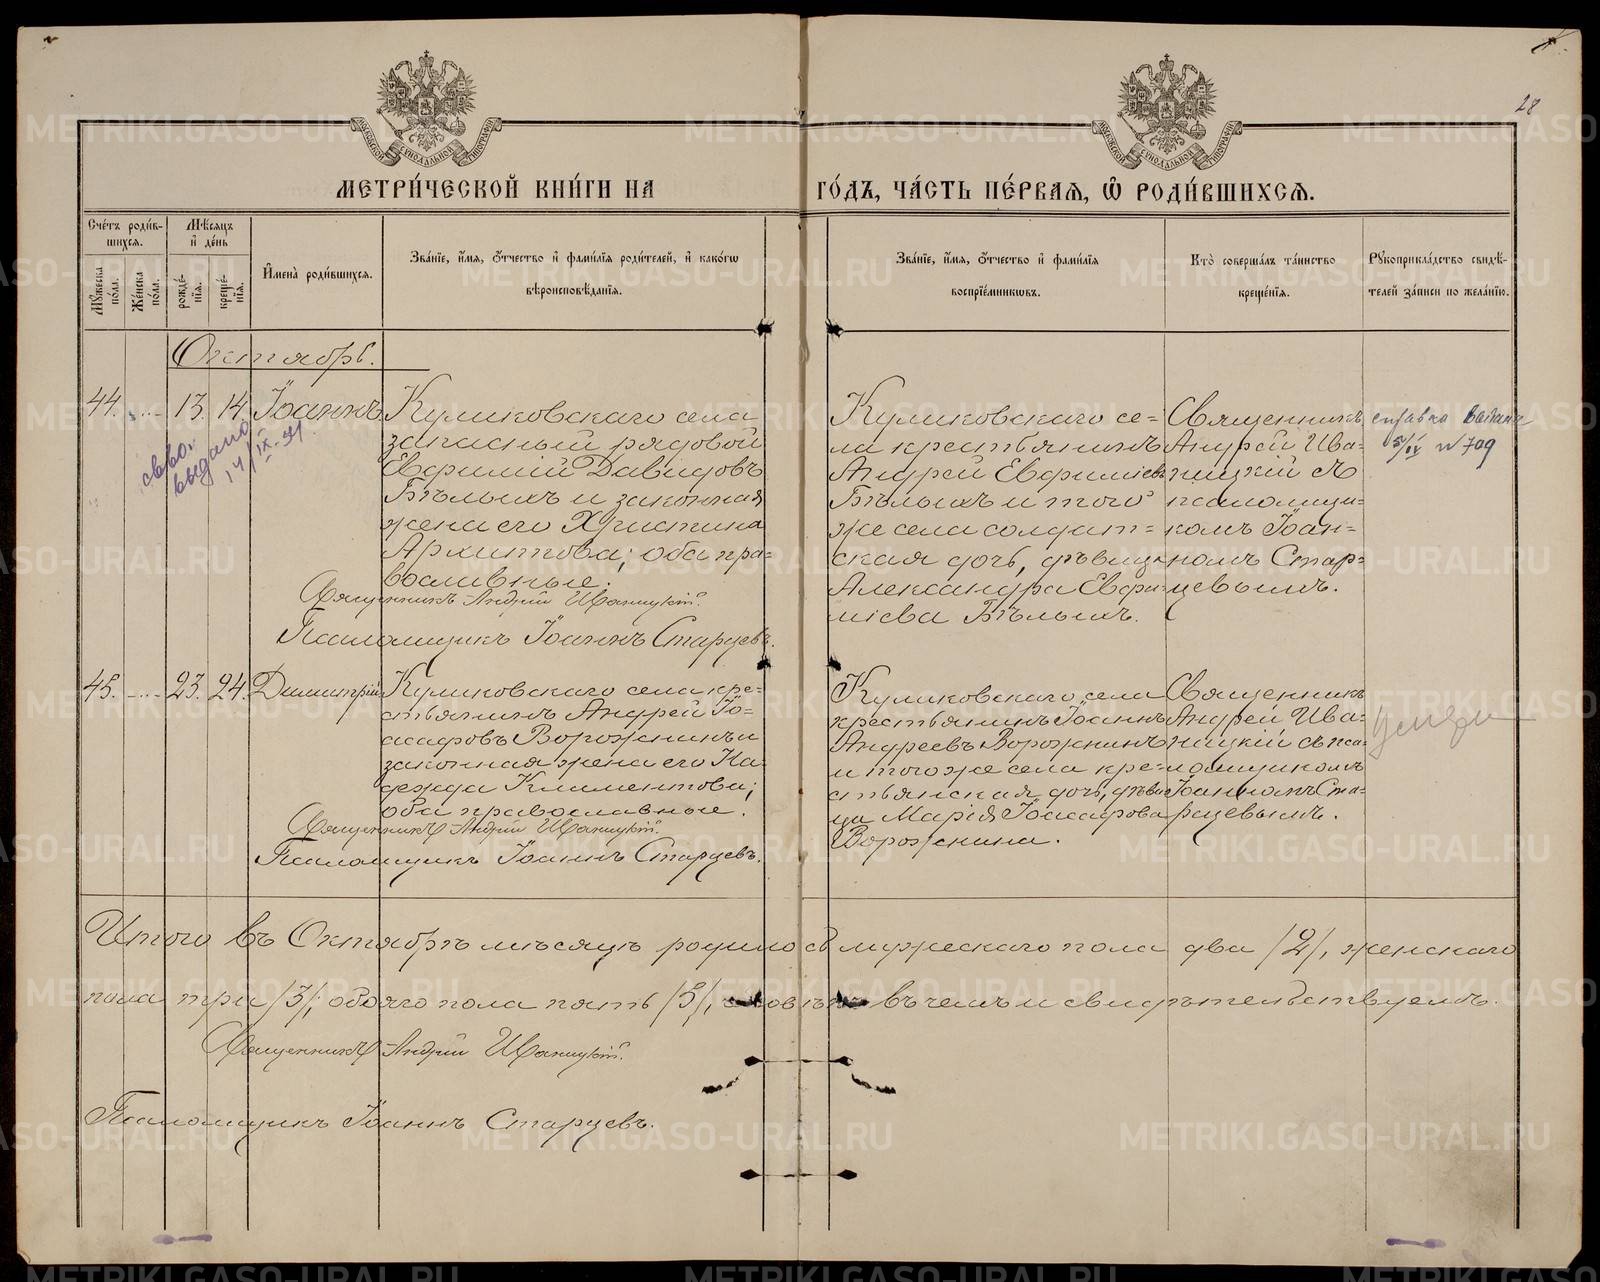 28
МОСКОВСКОЙ СѴНОДАЛЬНОЙ ТИПОГРАФІИ
МОСКОВСКОЙ СѴНОДАЛЬНОЙ ТИПОГРАФІИ
МЕТРИ́ЧЕСКОЙ КНИ́ГИ НА ГО́ДЪ, ЧА́СТЬ ПЕ́РВАѦ, Ѽ РОДИ́ВШИХСѦ.
Сче́тъ роди́в-
шихсѧ.
Мꙋжеска по́ла.
Же́нска по́ла.
Мѣ́сѧцъ
и҆ де́нь
рожде́-
нїѧ.
креще́-
нїѧ.
И҆мена̀ роди́вшихсѧ.
Зва́нїе, и҆́мѧ, ѻ҆́тчество и҆ фами́лїѧ роди́телей, и҆ како́гѡ
вѣроисповѣ́данїѧ.
Зва́нїе, и҆́мѧ, ѻ҆́тчество и҆ фами́лїѧ
воспрїе́мникѡвъ.
Кто̀ соверша́лъ та́инство
креще́нїѧ.
Рꙋкоприкла́дство свидѣ́-
телей за́писи по жела́нїю.
Октябрь.
44. 13. 14. Іоаннъ
Куликовскаго села
запасный рядовой
Евфимій Давидовъ
Бѣлыхъ и законная
жена его Христина
Архиппова; оба пра=
вославные.
Священникъ Андрей Иваницкій.
Псаломщикъ Іоаннъ Старцевъ.
Куликовскаго се=
ла крестьянинъ
Андрей Евфиміевъ
Бѣлыхъ и того
же села солдат=
ская дочь, дѣвица
Александра Евфи-
міева Бѣлыхъ.
Священникъ
Андрей Ива-
ницкій съ
псаломщи=
комъ Іоан=
номъ Стар=
цевымъ.
справка выдана
5/IX N 709
выдано
14/IX-31.
45. 23. 24. Димитрій
Куликовскаго села кре=
стьянинъ Андрей Іо=
асафовъ Ворожнинъ и
законная жена его На-
дежда Климентова;
оба православные.
Священникъ Андрей Иваницкій.
Псаломщикъ Іоаннъ Старцевъ.
Куликовскаго села
крестьянинъ Іоаннъ
Андреевъ Ворожнинъ
и того же села кре=
стьянская дочь, дѣви
ца Марія Іоасафова
Ворожнина.
Священникъ
Андрей Ива-
ницкій съ пса-
ломщикомъ
Іоанномъ Ста-
рцевымъ.
Итого въ Октябрѣ мѣсяцѣ родилось мужескаго пола два /2/, женскаго
пола три /3/; обоего пола пять /5/, въ чемъ и свидѣтельствуемъ.
Священникъ Андрей Иваницкій.
Псаломщикъ Іоаннъ Старцевъ.
METRIKI.GASO-URAL.RU